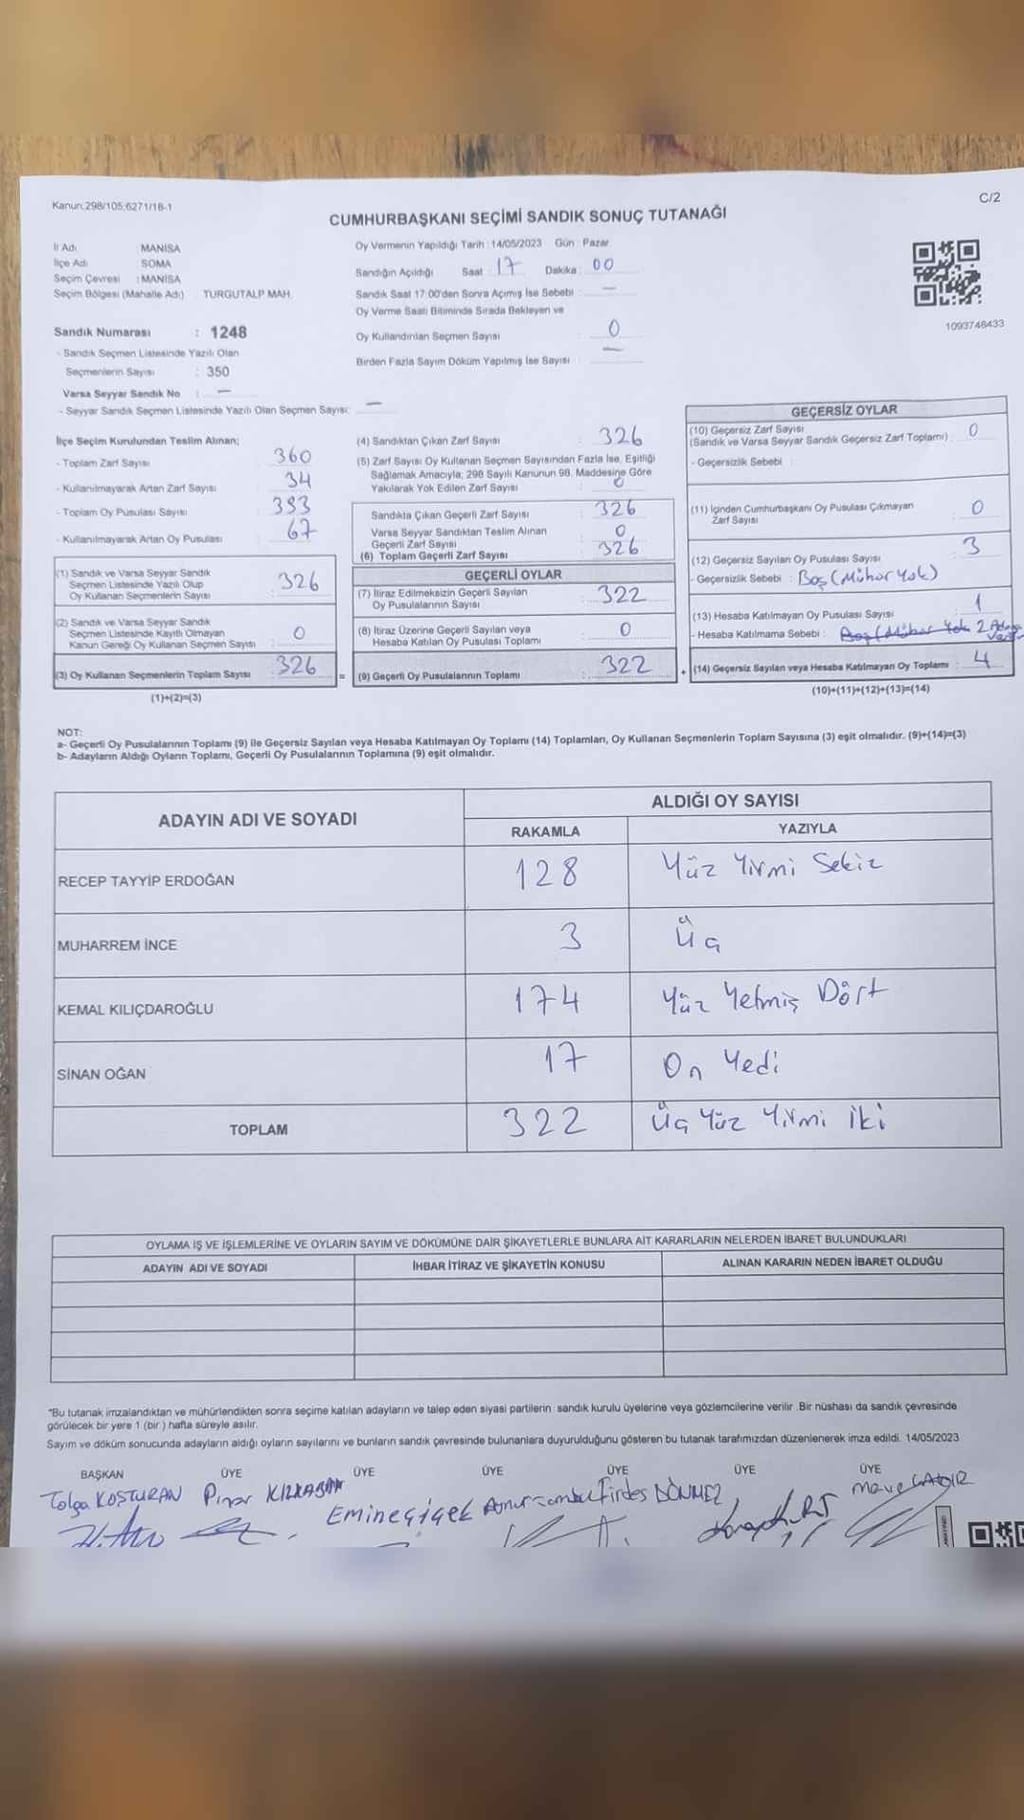 Kanun:298/105;6271/18-1
C/2
CUMHURBAŞKANI SEÇİMİ SANDIK SONUÇ TUTANAĞI
İl Adı : MANİSA
İlçe Adı : SOMA
Seçim Çevresi : MANİSA
Seçim Bölgesi (Mahalle Adı) TURGUTALP MAH.
Sandık Numarası : 1248
- Sandık Seçmen Listesinde Yazılı Olan
Seçmenlerin Sayısı : 350
Varsa Seyyar Sandık No : —
- Seyyar Sandık Seçmen Listesinde Yazılı Olan Seçmen Sayısı: —
Oy Vermenin Yapıldığı Tarih : 14/05/2023 Gün : Pazar
Sandığın Açıldığı Saat : 17 Dakika : 00
Sandık Saat 17:00'den Sonra Açımış İse Sebebi : —
Oy Verme Saati Bitiminde Sırada Bekleyen ve
Oy Kullandırılan Seçmen Sayısı : 0
Birden Fazla Sayım Döküm Yapılmış İse Sayısı : —
1093748433
İlçe Seçim Kurulundan Teslim Alınan;
- Toplam Zarf Sayısı : 360
- Kullanılmayarak Artan Zarf Sayısı : 34
- Toplam Oy Pusulası Sayısı : 393
- Kullanılmayarak Artan Oy Pusulası : 67
(1) Sandık ve Varsa Seyyar Sandık
Seçmen Listesinde Yazılı Olup
Oy Kullanan Seçmenlerin Sayısı : 326
(2) Sandık ve Varsa Seyyar Sandık
Seçmen Listesinde Kayıtlı Olmayan
Kanun Gereği Oy Kullanan Seçmen Sayısı : 0
(3) Oy Kullanan Seçmenlerin Toplam Sayısı : 326
(1)+(2)=(3)
(4) Sandıktan Çıkan Zarf Sayısı : 326
(5) Zarf Sayısı Oy Kullanan Seçmen Sayısından Fazla İse, Eşitliği
Sağlamak Amacıyla, 298 Sayılı Kanunun 98. Maddesine Göre
Yakılarak Yok Edilen Zarf Sayısı : 0
Sandıkta Çıkan Geçerli Zarf Sayısı : 326
Varsa Seyyar Sandıktan Teslim Alınan
Geçerli Zarf Sayısı : 0
(6) Toplam Geçerli Zarf Sayısı : 326
GEÇERLİ OYLAR
(7) İtiraz Edilmeksizin Geçerli Sayılan
Oy Pusulalarının Sayısı : 322
(8) İtiraz Üzerine Geçerli Sayılan veya
Hesaba Katılan Oy Pusulası Toplamı : 0
= (9) Geçerli Oy Pusulalarının Toplamı : 322
GEÇERSİZ OYLAR
(10) Geçersiz Zarf Sayısı
(Sandık ve Varsa Seyyar Sandık Geçersiz Zarf Toplamı) : 0
- Geçersizlik Sebebi :
(11) İçinden Cumhurbaşkanı Oy Pusulası Çıkmayan
Zarf Sayısı : 0
(12) Geçersiz Sayılan Oy Pusulası Sayısı : 3
- Geçersizlik Sebebi : Boş (Mühür Yok)
(13) Hesaba Katılmayan Oy Pusulası Sayısı : 1
- Hesaba Katılmama Sebebi : Boş (Mühür Yok 2
+ (14) Geçersiz Sayılan veya Hesaba Katılmayan Oy Toplamı : 4
(10)+(11)+(12)+(13)=(14)
NOT:
a- Geçerli Oy Pusulalarının Toplamı (9) ile Geçersiz Sayılan veya Hesaba Katılmayan Oy Toplamı (14) Toplamları, Oy Kullanan Seçmenlerin Toplam Sayısına (3) eşit olmalıdır. (9)+(14)=(3)
b- Adayların Aldığı Oyların Toplamı, Geçerli Oy Pusulalarının Toplamına (9) eşit olmalıdır.
ADAYIN ADI VE SOYADI
ALDIĞI OY SAYISI
RAKAMLA YAZIYLA
RECEP TAYYİP ERDOĞAN 128 Yüz Yirmi Sekiz
MUHARREM İNCE 3 Üç
KEMAL KILIÇDAROĞLU 174 Yüz Yetmiş Dört
SİNAN OĞAN 17 On Yedi
TOPLAM 322 Üç Yüz Yirmi İki
OYLAMA İŞ VE İŞLEMLERİNE VE OYLARIN SAYIM VE DÖKÜMÜNE DAİR ŞİKAYETLERLE BUNLARA AİT KARARLARIN NELERDEN İBARET BULUNDUKLARI
ADAYIN ADI VE SOYADI İHBAR İTİRAZ VE ŞİKAYETİN KONUSU ALINAN KARARIN NEDEN İBARET OLDUĞU
*Bu tutanak imzalandıktan ve mühürlendikten sonra seçime katılan adayların ve talep eden siyasi partilerin sandık kurulu üyelerine veya gözlemcilerine verilir. Bir nüshası da sandık çevresinde
görülecek bir yere 1 (bir) hafta süreyle asılır.
Sayım ve döküm sonucunda adayların aldığı oyların sayılarını ve bunların sandık çevresinde bulunanlara duyurulduğunu gösteren bu tutanak tarafımızdan düzenlenerek imza edildi. 14/05/2023
BAŞKAN ÜYE ÜYE ÜYE ÜYE ÜYE ÜYE
Tolga KOŞTURAN Pınar Emine Çiçek Firdes DÖNMEZ